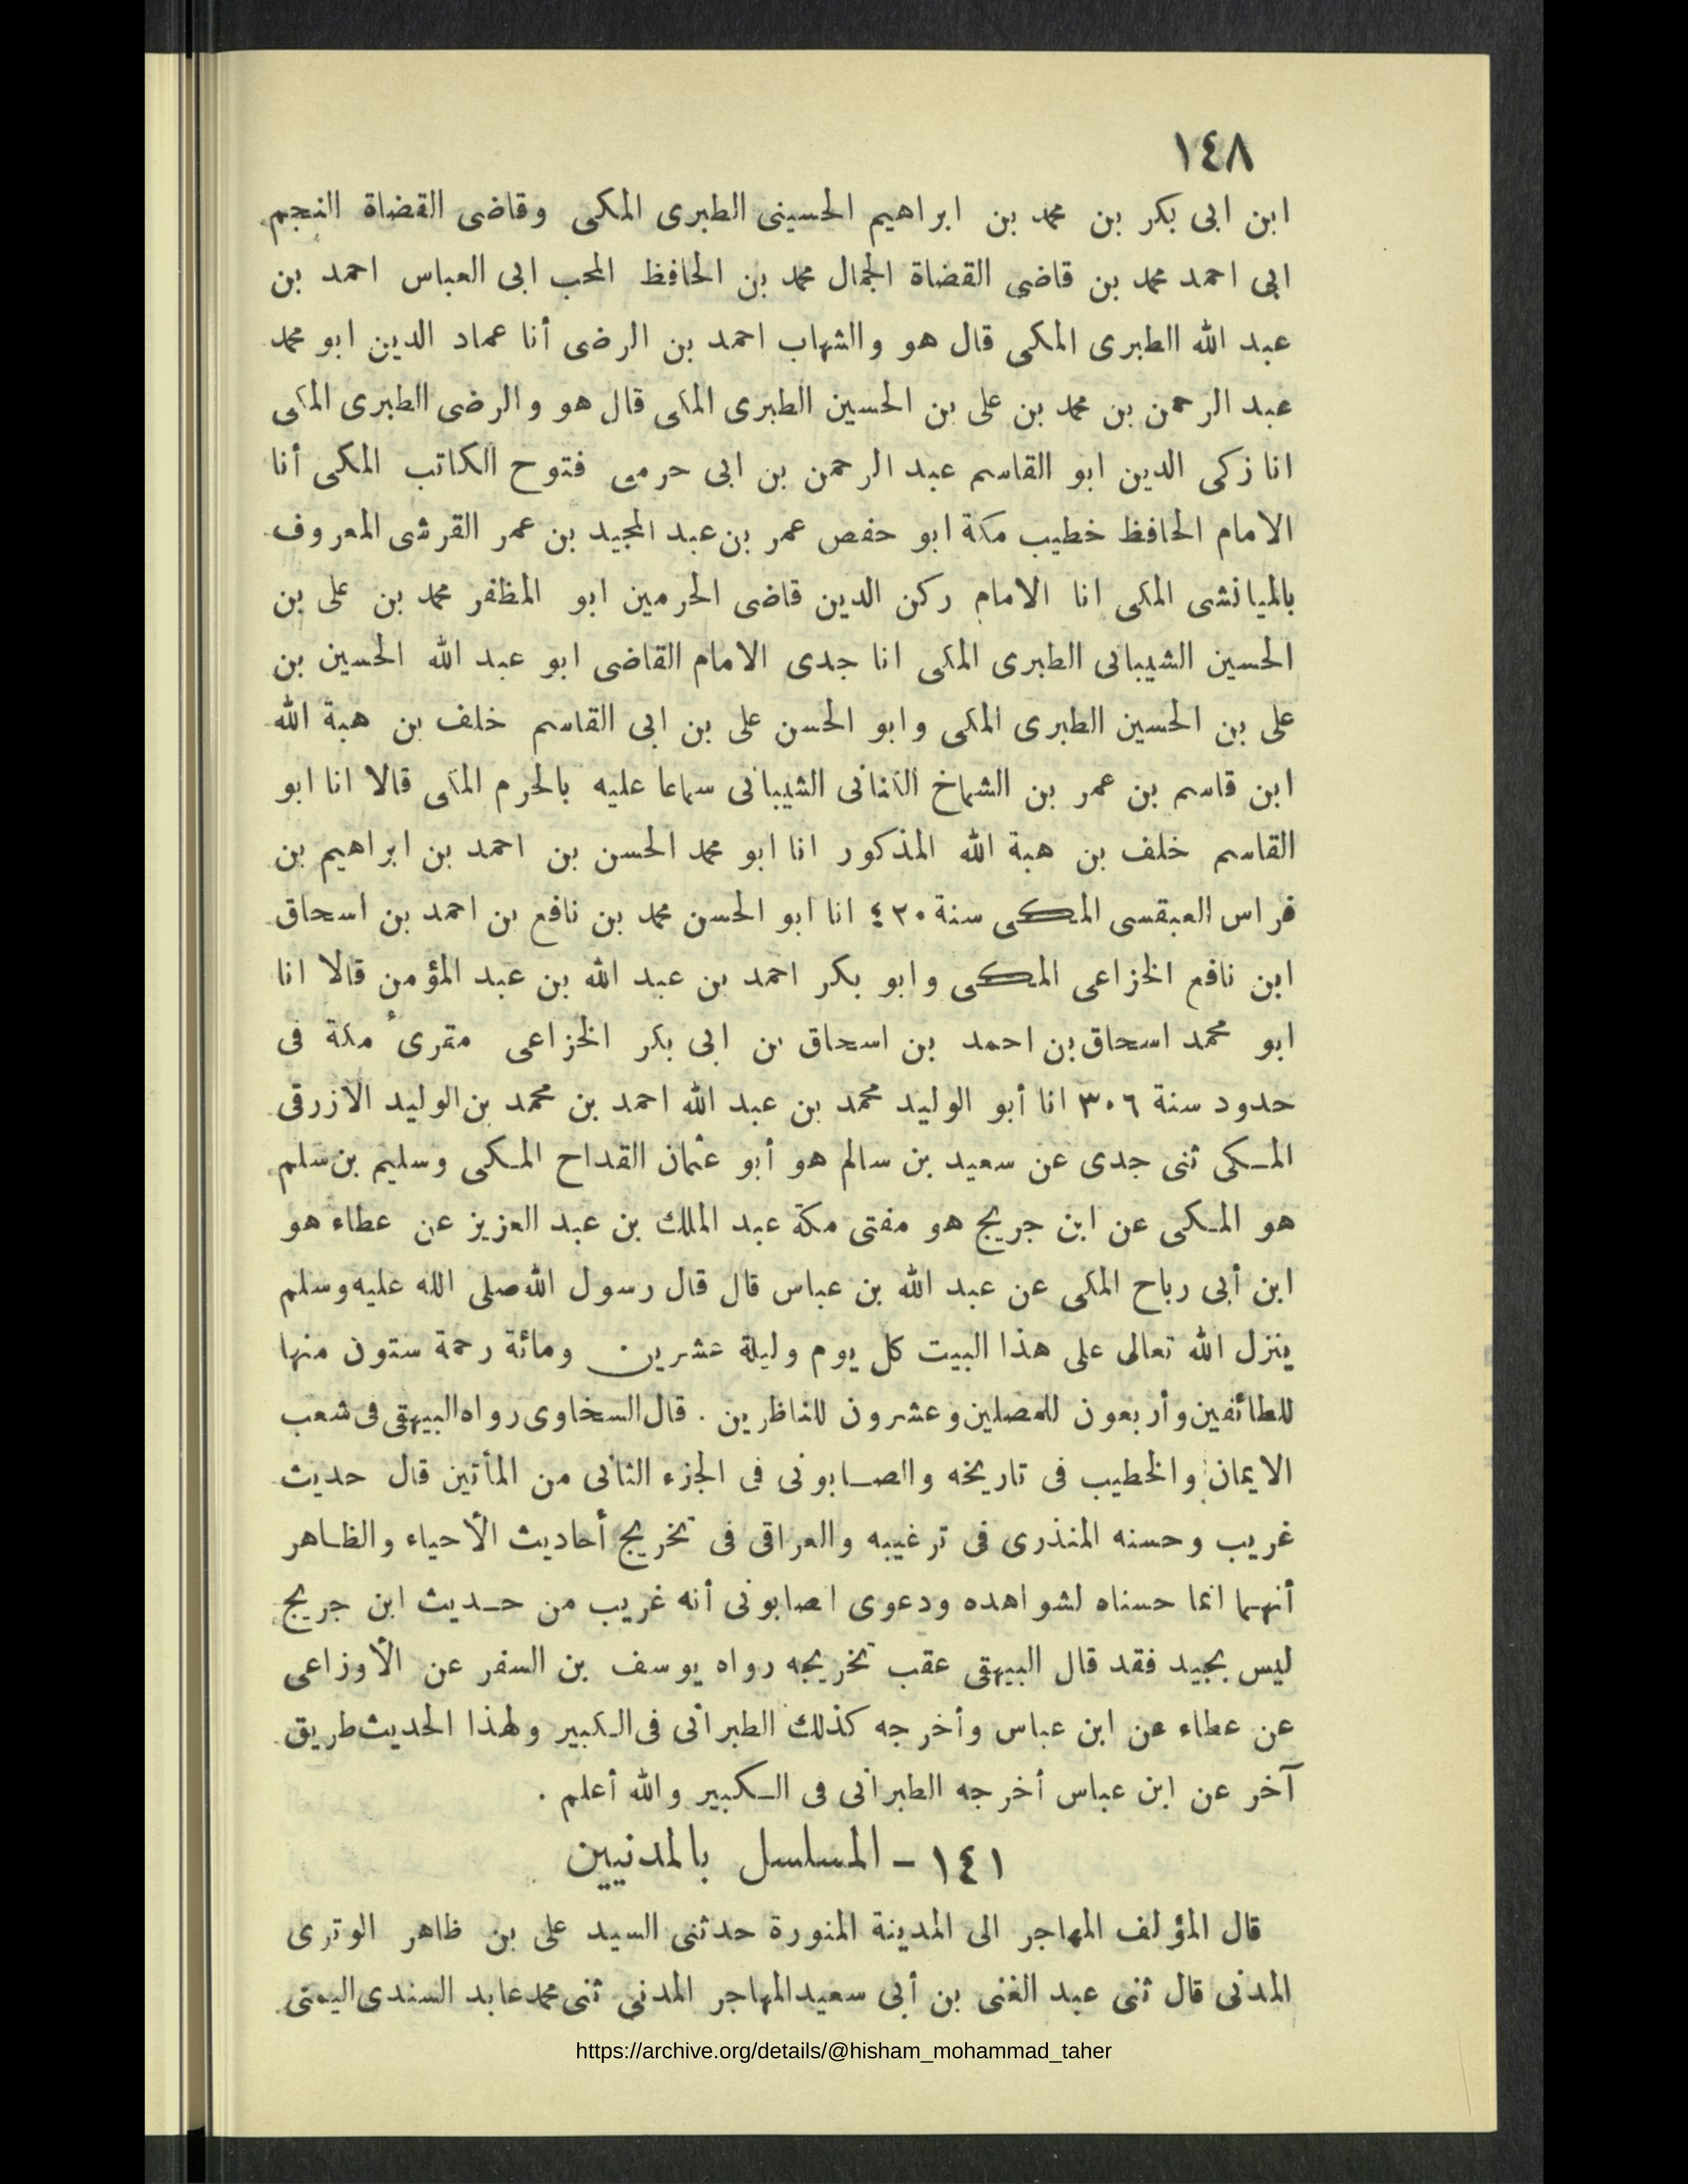 ١٤٨
ابن ابى بكر بن محمد بن ابراهيم الحسينى الطبرى المكى وقاضى القضاة النجم
ابى احمد محمد بن قاضى القضاة الجمال محمد بن الحافظ المحب ابى العباس احمد بن
عبد الله الطبرى المكى قال هو والشهاب احمد بن الرضى أنا عماد الدين ابو محمد
عبد الرحمن بن محمد بن على بن الحسين الطبرى المكى قال هو والرضى الطبرى المكى
انا زكى الدين ابو القاسم عبد الرحمن بن ابى حرمى فتوح الكاتب المكى أنا
الامام الحافظ خطيب مكة ابو حفص عمر بن عبد المجيد بن عمر القرشى المعروف
بالميانشى المكى انا الامام ركن الدين قاضى الحرمين ابو المظفر محمد بن على بن
الحسين الشيبانى الطبرى المكى انا جدى الامام القاضى ابو عبد الله الحسين بن
على بن الحسين الطبرى المكى وابو الحسن على بن ابى القاسم خلف بن هبة الله
ابن قاسم بن عمر بن الشماخ الكنانى الشيبانى سماعا عليه بالحرم المكى قالا انا ابو
القاسم خلف بن هبة الله المذكور انا ابو محمد الحسن بن احمد بن ابراهيم بن
فراس العبقسى المكى سنة ٤٢٠ انا ابو الحسن محمد بن نافع بن احمد بن اسحاق
ابن نافع الخزاعى المكى وابو بكر احمد بن عبد الله بن عبد المؤمن قالا انا
ابو محمد اسحاق بن احمد بن اسحاق بن ابى بكر الخزاعى مقرىء مكة فى
حدود سنة ٣٠٦ انا أبو الوليد محمد بن عبد الله احمد بن محمد بن الوليد الازرقى
المكى ثنى جدى عن سعيد بن سالم هو أبو عثمان القداح المكى وسليم بن سلم
هو المكى عن ابن جريج هو مفتى مكة عبد الملك بن عبد العزيز عن عطاء هو
ابن أبى رباح المكى عن عبد الله بن عباس قال قال رسول الله صلى الله عليه وسلم
ينزل الله تعالى على هذا البيت كل يوم وليلة عشرين ومائة رحمة ستون منها
للطائفين وأربعون للمصلين وعشرون للناظرين . قال السخاوى رواه البيهقى فى شعب
الايمان والخطيب فى تاريخه والصابونى فى الجزء الثانى من المأتين قال حديث
غريب وحسنه المنذرى فى ترغيبه والعراقى فى تخريج أحاديث الأحياء والظاهر
أنهما انما حسناه لشواهده ودعوى اصابونى أنه غريب من حديث ابن جريج
ليس بجيد فقد قال البيهقى عقب تخريجه رواه يوسف بن السفر عن الأوزاعى
عن عطاء عن ابن عباس وأخرجه كذلك الطبرانى فى الكبير ولهذا الحديث طريق
آخر عن ابن عباس أخرجه الطبرانى فى الكبير والله أعلم .
١٤١ - المسلسل بالمدنيين
قال المؤلف المهاجر الى المدينة المنورة حدثنى السيد على بن ظاهر الوترى
المدنى قال ثنى عبد الغنى بن أبى سعيد المهاجر المدنى ثنى محمد عابد السندى اليمنى
https://archive.org/details/@hisham_mohammad_taher